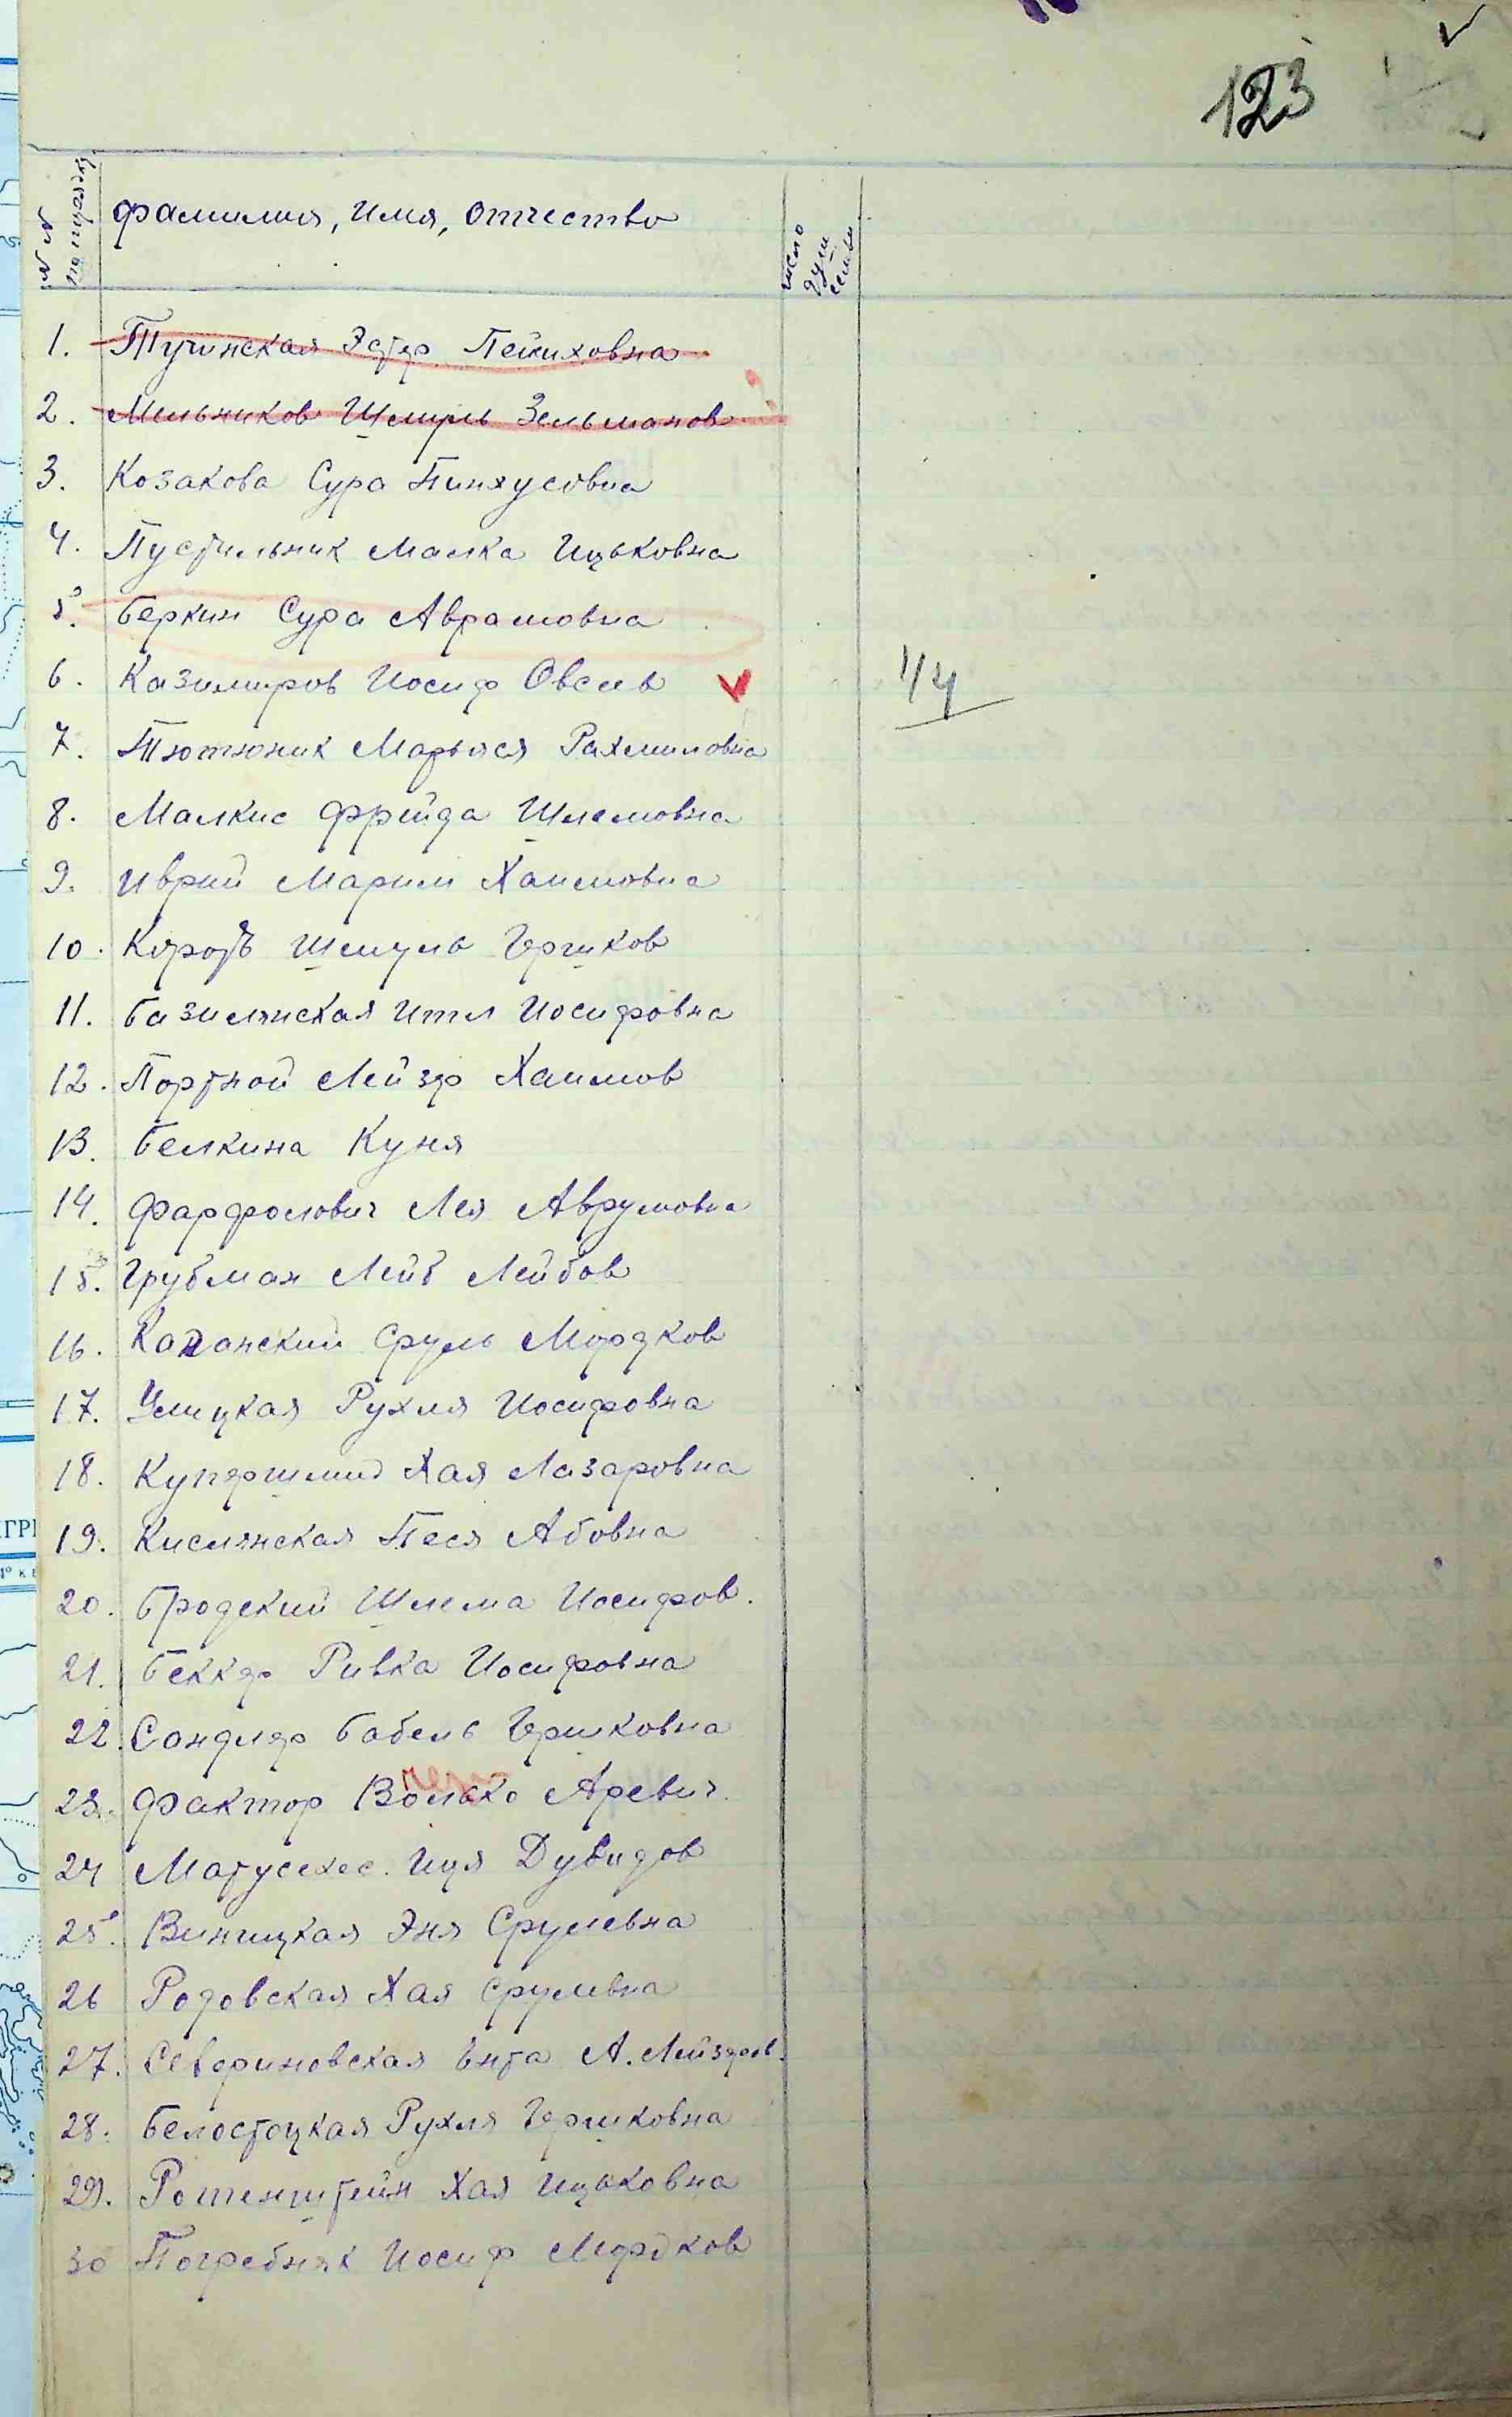 123
№ № по порядку
Фамилия, имя, отчество
число душ семьи
1. Тучинская Эстер Пейсиховна
2. Мельников Шмуль Зельманов
3. Козакова Сура Пинхусовна
4. Пустильник Малка Ицьковна
5. Беркин Сура Аврамовна
6. Казимиров Иосиф Овсев
7. Тютюник Марьяся Рахмиловна
8. Малкис Фрейда Шлемовна
9. Иврий Марим Хаимовна
10. Короб Шмуль Гершков
11. Базилянская Итля Иосифовна
12. Портной Лейзер Хаимов
13. Белкина Куня
14. Фарфролович Лея Аврумовна
15. Грубман Лейб Лейбов
16. Каданский Сруль Мордков
17. Улицкая Рухля Иосифовна
18. Купершмид Хая Лазаровна
19. Кислянская Песя Абовна
20. Бродский Шлема Иосифов.
21. Беккер Ривка Иосифовна
22. Сандлер Бабель Гершковна
23. Фактор Волько Аревич
24 Матусехес. Иця Дувидов
25. Виницкая Эня Срулевна
26 Родовская Хая Срулевна
27. Севериновская Ента А. Лейзеров.
28. Белостоцкая Рухля Гершковна
29. Ротенштейн Хая Ицьковна
30 Погребняк Иосиф Мордков